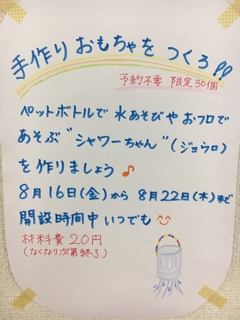 手作りおもちゃをつくろ!!
予約不要 限定30個
ペットボトルで水あそびやおフロで
あそぶ"シャワーちゃん"(ジョウロ)
を作りましょう♪
8月16日(金)から8月22日(木)まで
開設時間中いつでも
材料費20円
(なくなり次第終了)